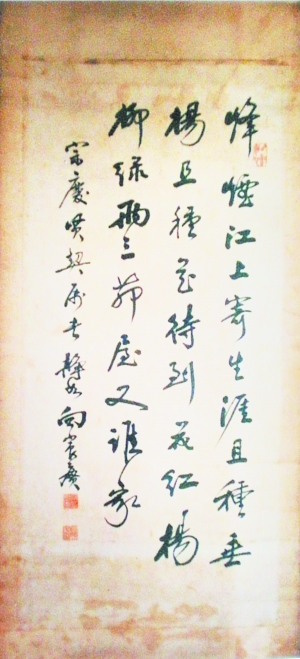 烽煙江上寄生涯且種垂
楊且種花待到花紅楊
柳綠兩三茆屋又誰家
宗慶賢契屬書向